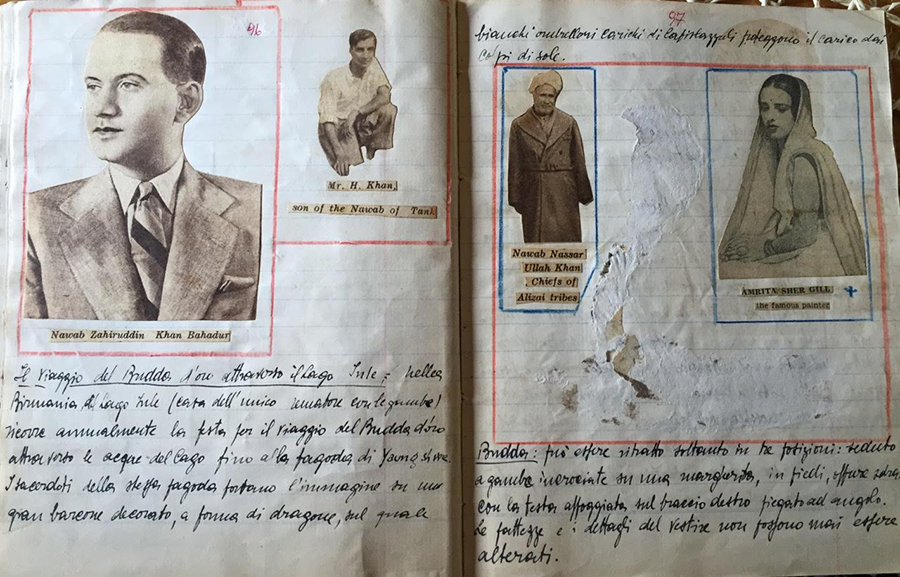 96
Mr. H. Khan,
son of the Nawab of Tank
Nawab Zahiruddin Khan Bahadur
Il viaggio del Budda d'oro attraverso il lago Inle: nella
Birmania, il lago Inle (casa dell'unico rematore con le gambe)
ricorre annualmente la festa per il viaggio del Budda d'oro
attraverso le acque del lago fino alla pagoda di
I sacerdoti della stessa pagoda portano l'immagine su un
gran barcone decorato, a forma di dragone, sul quale
97
bianchi ombrelloni carichi di lapislazzuli proteggono il carico dai
colpi di sole.
Nawab Nassar
Ullah Khan
, Chiefs of
Alizai tribes
AMRITA SHER GILL
the famous painter
Budda: può essere ritratto soltanto in tre posizioni: seduto
a gambe incrociate su una margherita, in piedi, oppure
con la testa appoggiata sul braccio destro piegato ad angolo.
Le fattezze e i dettagli del vestire non possono mai essere
alterati.